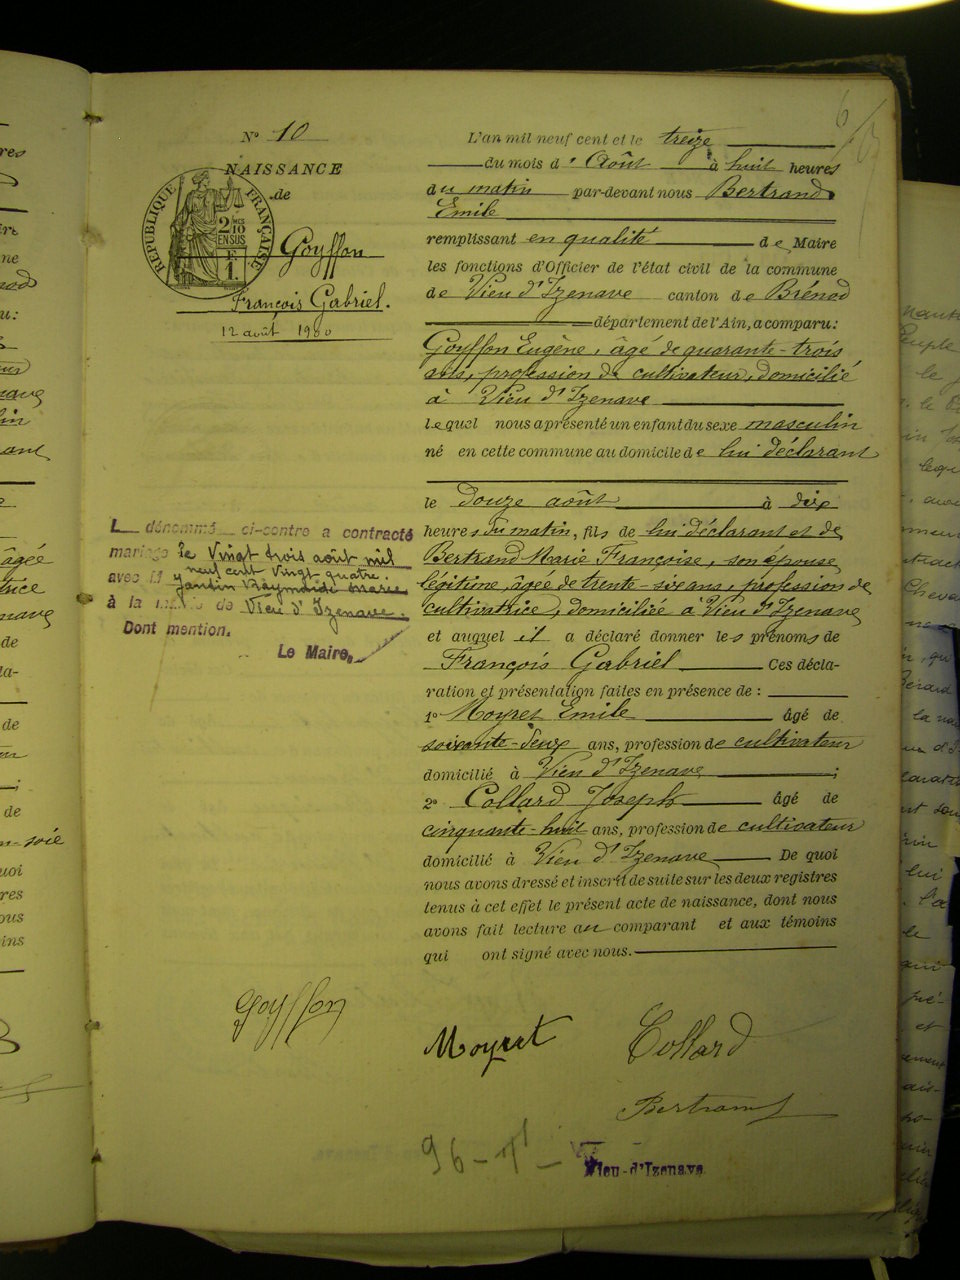 N° 10
NAISSANCE
de
RÉPUBLIQUE FRANÇAISE
2/10
EN SUS
F
1.
Goyffon
François Gabriel.
12 août 1900
6
L'an mil neuf cent et le treize
du mois d'Août à huit heures
du matin par-devant nous Bertrand
Emile
remplissant en qualité de Maire
les fonctions d'Officier de l'état civil de la commune
de Vieu d'Izenave canton de Brénod
département de l'Ain, a comparu:
Goyffon Eugène, âgé de quarante-trois
ans, profession de cultivateur, domicilié
à Vieu d'Izenave
lequel nous a présenté un enfant du sexe masculin
né en cette commune au domicile de lui déclarant
le douze août à dix
heures du matin, fils de lui déclarant et de
Bertrand Marie Françoise, son épouse
légitime, âgée de trente-six ans, profession de
cultivatrice, domiciliée à Vieu d'Izenave
et auquel il a déclaré donner les prénoms de
François Gabriel Ces décla-
ration et présentation faites en présence de :
1° Moyret Emile âgé de
soixante-deux ans, profession de cultivateur
domicilié à Vieu d'Izenave ;
2° Collard Joseph âgé de
cinquante-huit ans, profession de cultivateur
domicilié à Vieu d'Izenave De quoi
nous avons dressé et inscrit de suite sur les deux registres
tenus à cet effet le présent acte de naissance, dont nous
avons fait lecture au comparant et aux témoins
qui ont signé avec nous.
L dénommé ci-contre a contracté
mariage le Vingt trois août mil
neuf cent Vingt quatre.
avec M
Jandin Raymonde Marie
à la mairie de Vieu d'Izenave.
Dont mention.
Le Maire,
Goyffon
Moyret
Collard
Bertrand
96 -
Vieu-d'Izenave